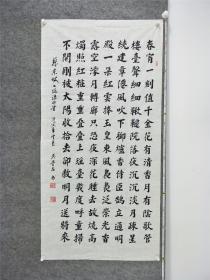 春宵一刻值千金花有清香月有陰歌管
樓臺聲細細鞦韆院落夜沉沉淡月疎星
繞建章仙風吹下御爐香侍臣鵠立通明
殿一朵紅雲捧玉皇東風嫋嫋泛崇光香
霧空濛月轉廊只恐夜深花睡去故燒高
燭照紅粧重重疊疊上瑤臺幾度呼童掃
不開剛被太陽收拾去却教明月送將來
蘇東坡